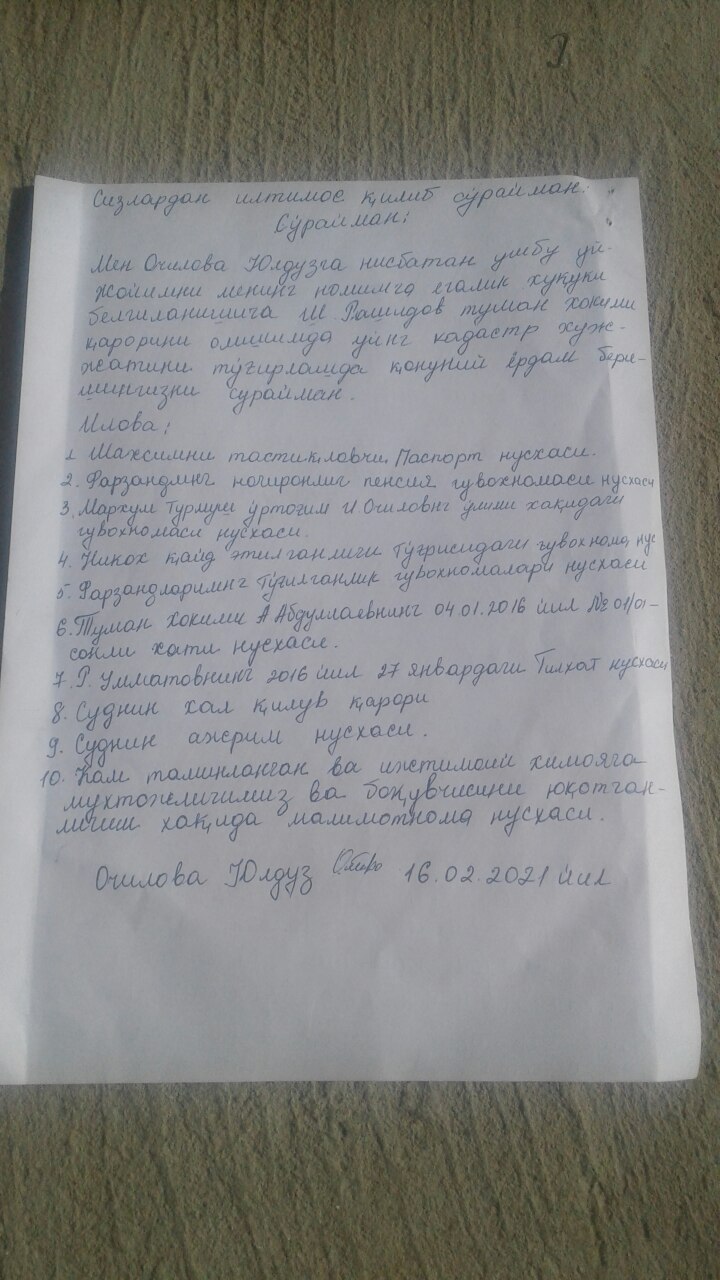 Сизлардан илтимос қилиб сўрайман.
Сўрайман:
Мен Очилова Юлдузга нисбатан ушбу уй-
жойимни менинг номимга егалик хукуки
белгиланишига Ш Рашидов туман хокими
қарорини олишимда уйнг кадастр хуж-
жатини тўғирлашда қонуний ёрдам бери-
шингизни сурайман.
Илова:
1. Шахсимни тастиқловчи Паспорт нусхаси.
2. Фарзандинг ногиронлиг пенсия гувохномаси нусхаси
3. Мархум Турмуш ўртоғим И Очиловнг ўлими хақидаги
гувохномаси нусхаси.
4. Никох қайд этилганлиги тўғрисидаги гувохнома нус
5. Фарзандларимнг Туғилганлик гувохномалари нусхаси
6. Туман Хокими А Абдуллаевнинг 04.01.2016 йил № 01/01-
сонли хати нусхаси.
7. Р. Умматовнинг 2016 йил 27 январдаги Тилхат нусхаси
8. Суднин хал қилув қарори
9. Суднин ажрим нусхаси.
10. Кам таминланган ва ижтимоий химояга
мухтожлигимиз ва боқувчисини юқотган-
лигиш хақида малимотнома нусхаси.
Очилова Юлдуз 16.02.2021 йил